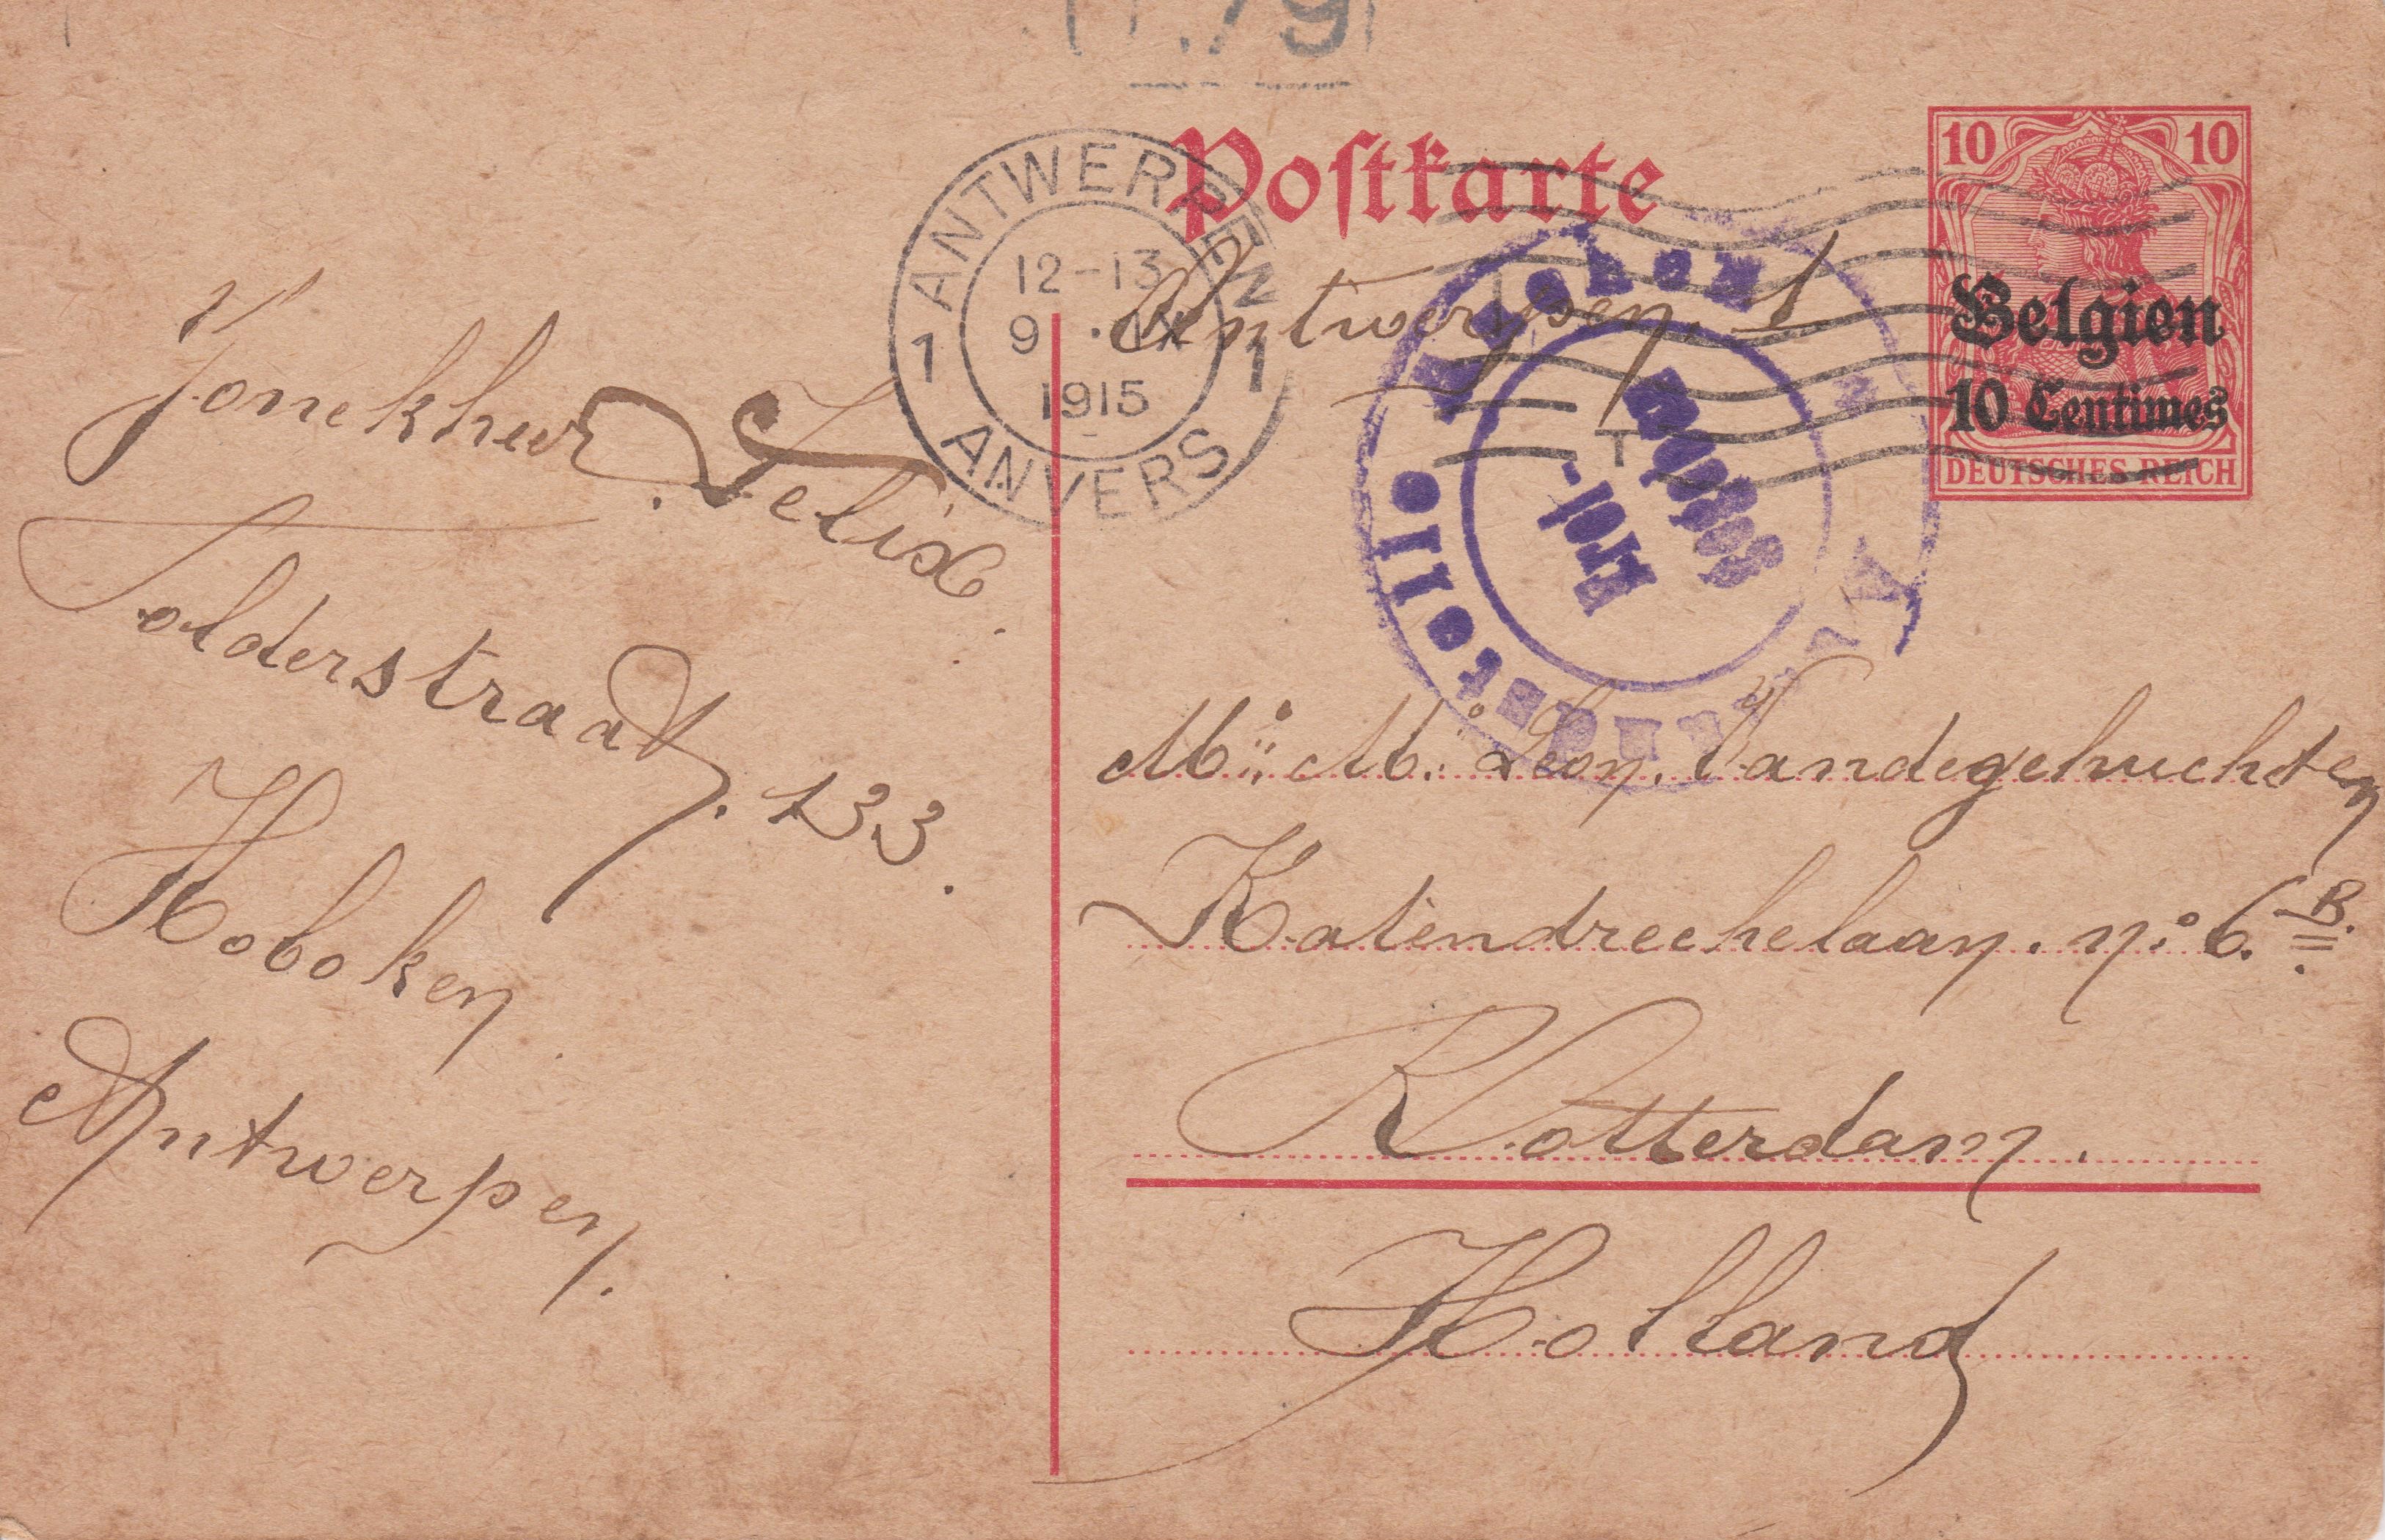 Postkarte
10 10
Belgien
10 Centimes
DEUTSCHES REICH
ANTWERPEN
12-13
9 · IX
1915
1 1
ANVERS
Antwerpen. 1.
Aachen
Auslandstelle
Felix.
Polderstraat. 133.
Hoboken
Antwerpen.
M. Leon. Vandegehuchten
Katendrechelaan. n° 6. B.
Rotterdam.
Holland